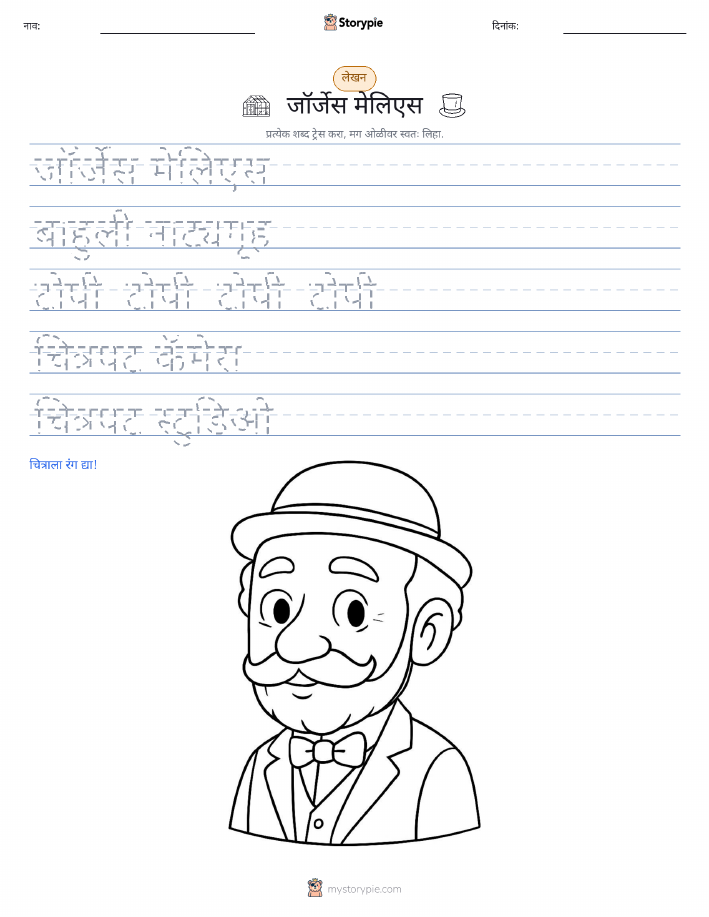 नाव:
Storypie
दिनांक:
लेखन
जॉर्जेस मेलिएस
प्रत्येक शब्द ट्रेस करा, मग ओळीवर स्वतः लिहा.
जॉर्जेस मेलिएस
बाहुली नाट्यगृह
टोपी टोपी टोपी टोपी
चित्रपट कॅमेरा
चित्रपट स्टुडिओ
चित्राला रंग द्या!
mystorypie.com